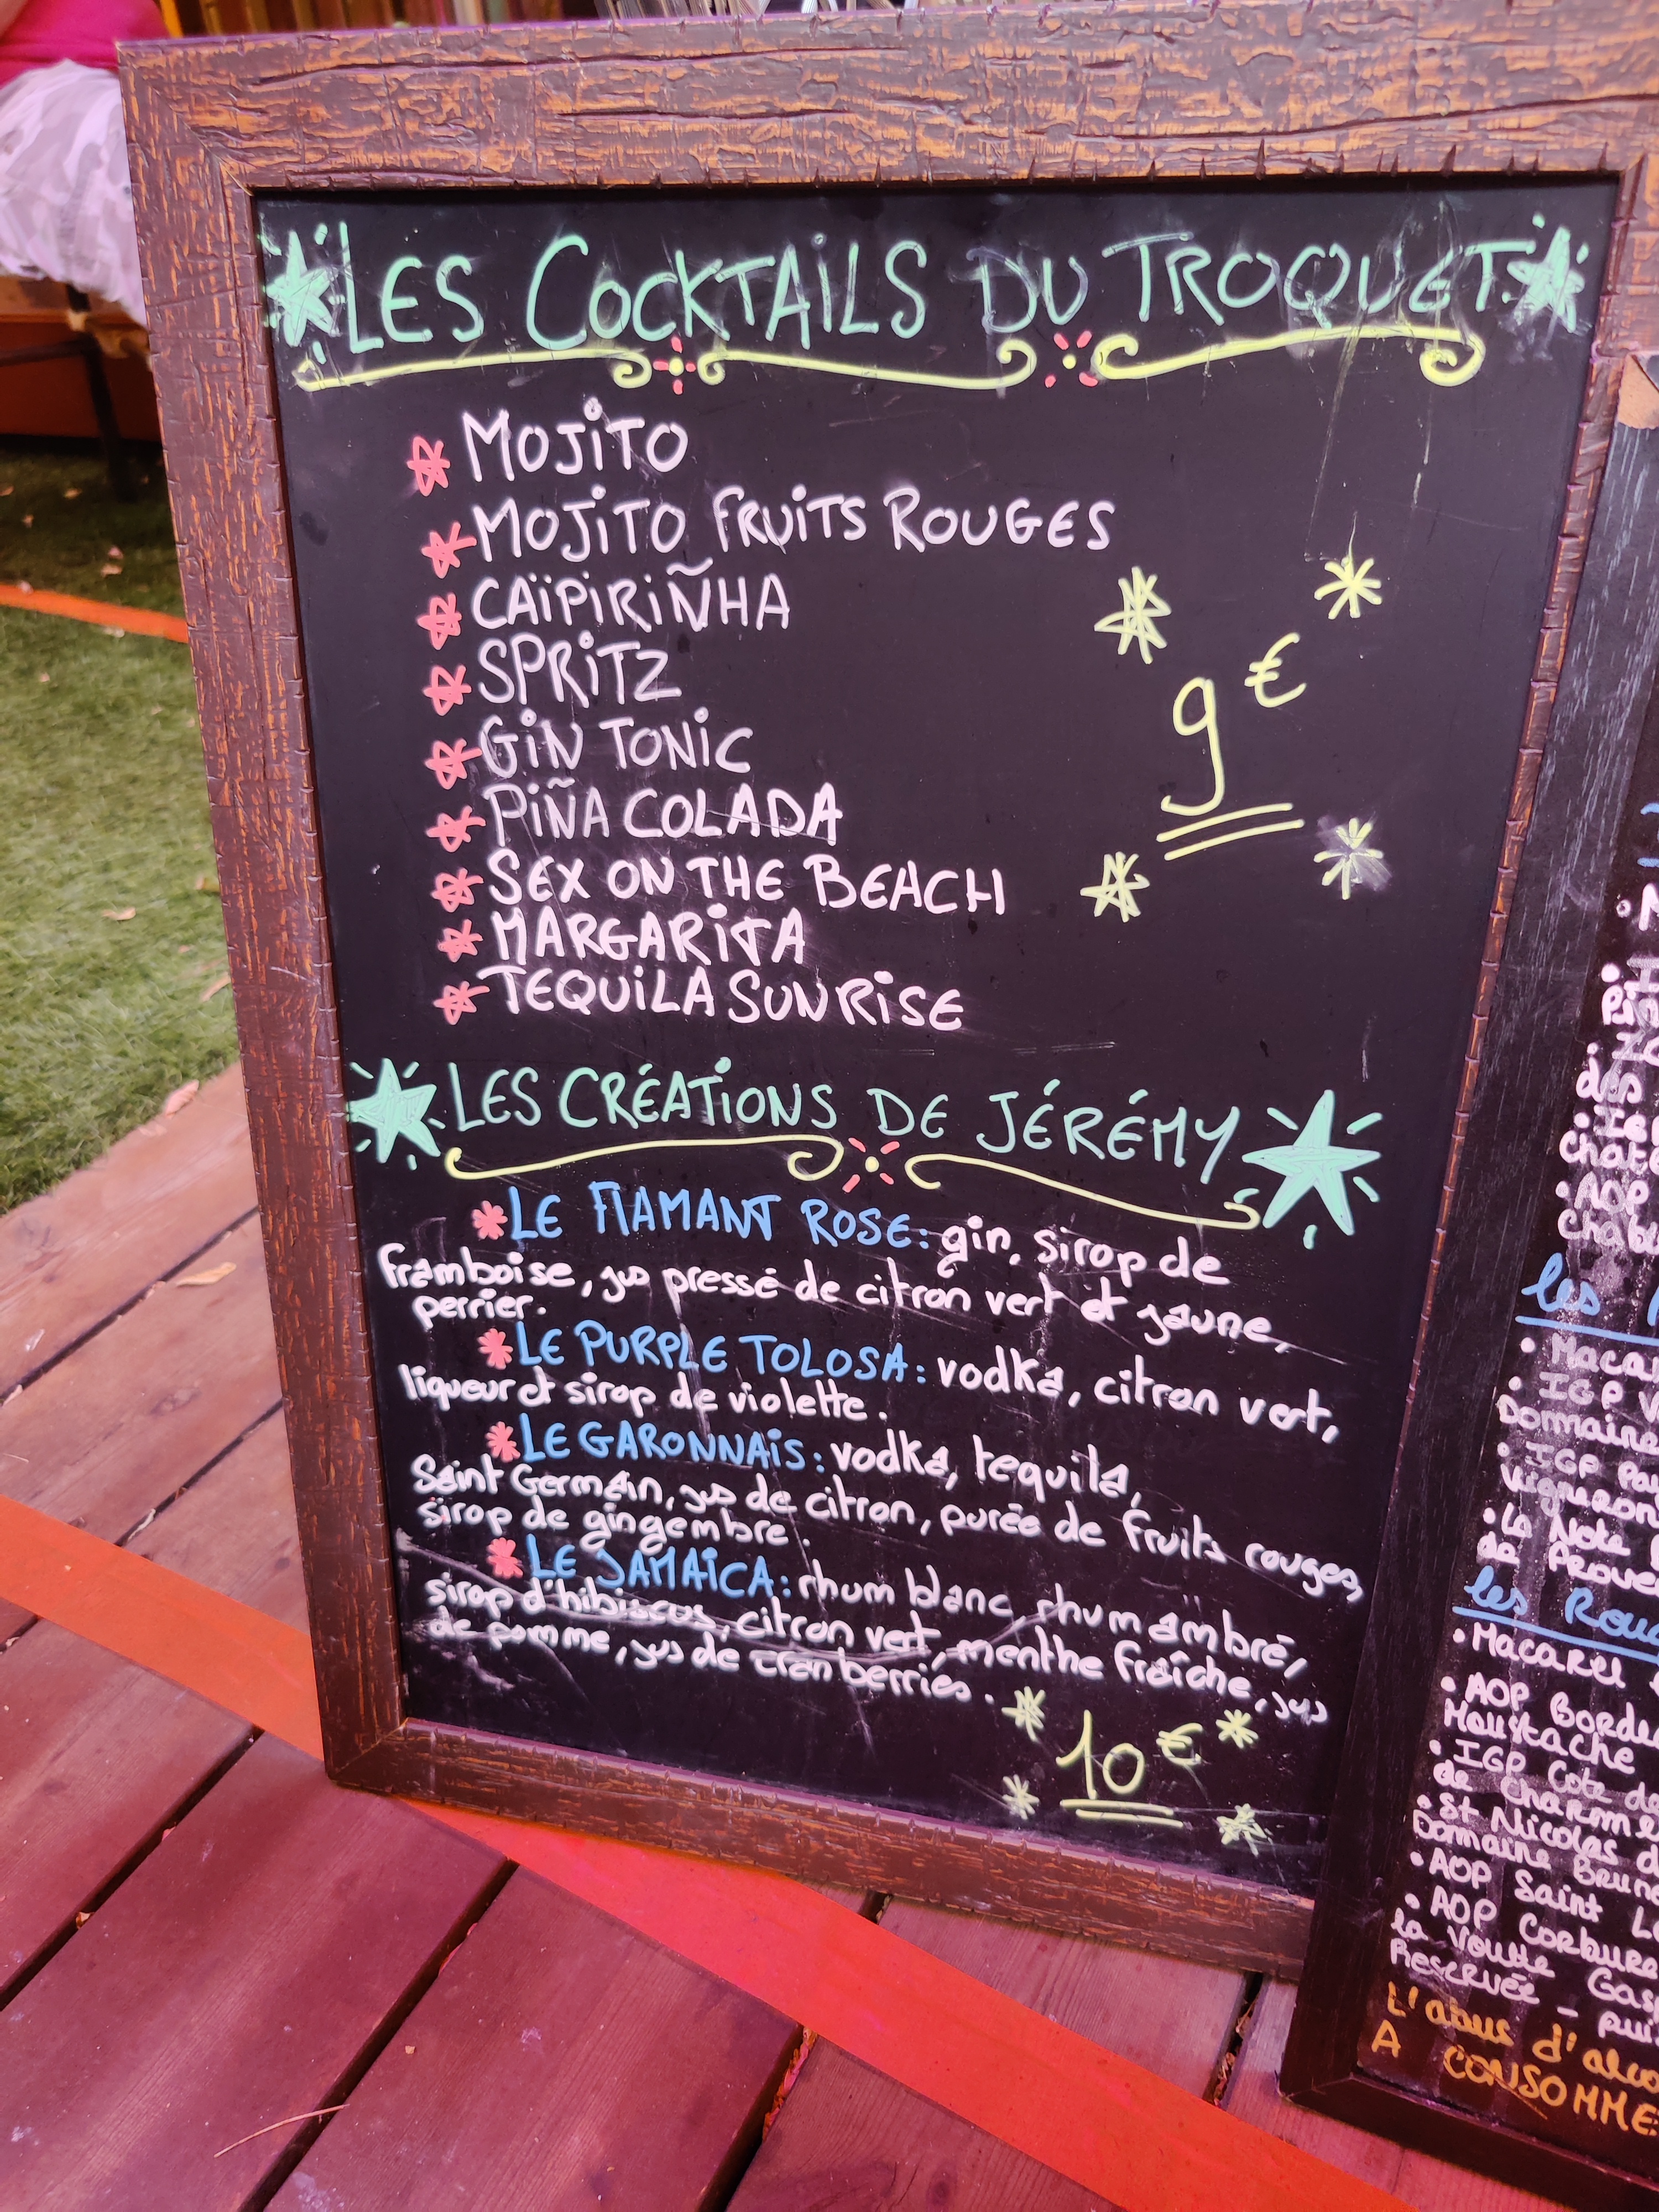 LES COCKTAILS DU TROQUET
MOJITO
MOJITO FRUITS ROUGES
CAÏPIRIÑHA
SPRITZ
GIN TONIC
PIÑA COLADA
SEX ON THE BEACH
MARGARITA
TEQUILA SUNRISE
9€
LES CRÉATIONS DE JÉRÉMY
LE FLAMANT ROSE: gin, sirop de
framboise, jus pressé de citron vert et jaune,
perrier.
LE PURPLE TOLOSA: vodka, citron vert,
liqueur et sirop de violette.
LE GARONNAIS: vodka, tequila,
Saint Germain, jus de citron, purée de fruits rouges,
sirop de gingembre.
LE JAMAÏCA: rhum blanc, rhum ambré,
sirop d'hibiscus, citron vert, menthe fraîche, jus
de pomme, jus de cranberries.
10€
des
les
Domaine
les
AOP
Moustache
IGP Cote de
de
St Nicolas
Domaine
AOP Saint
AOP
la Voute
Reservée
L'abus
A CONSOMME